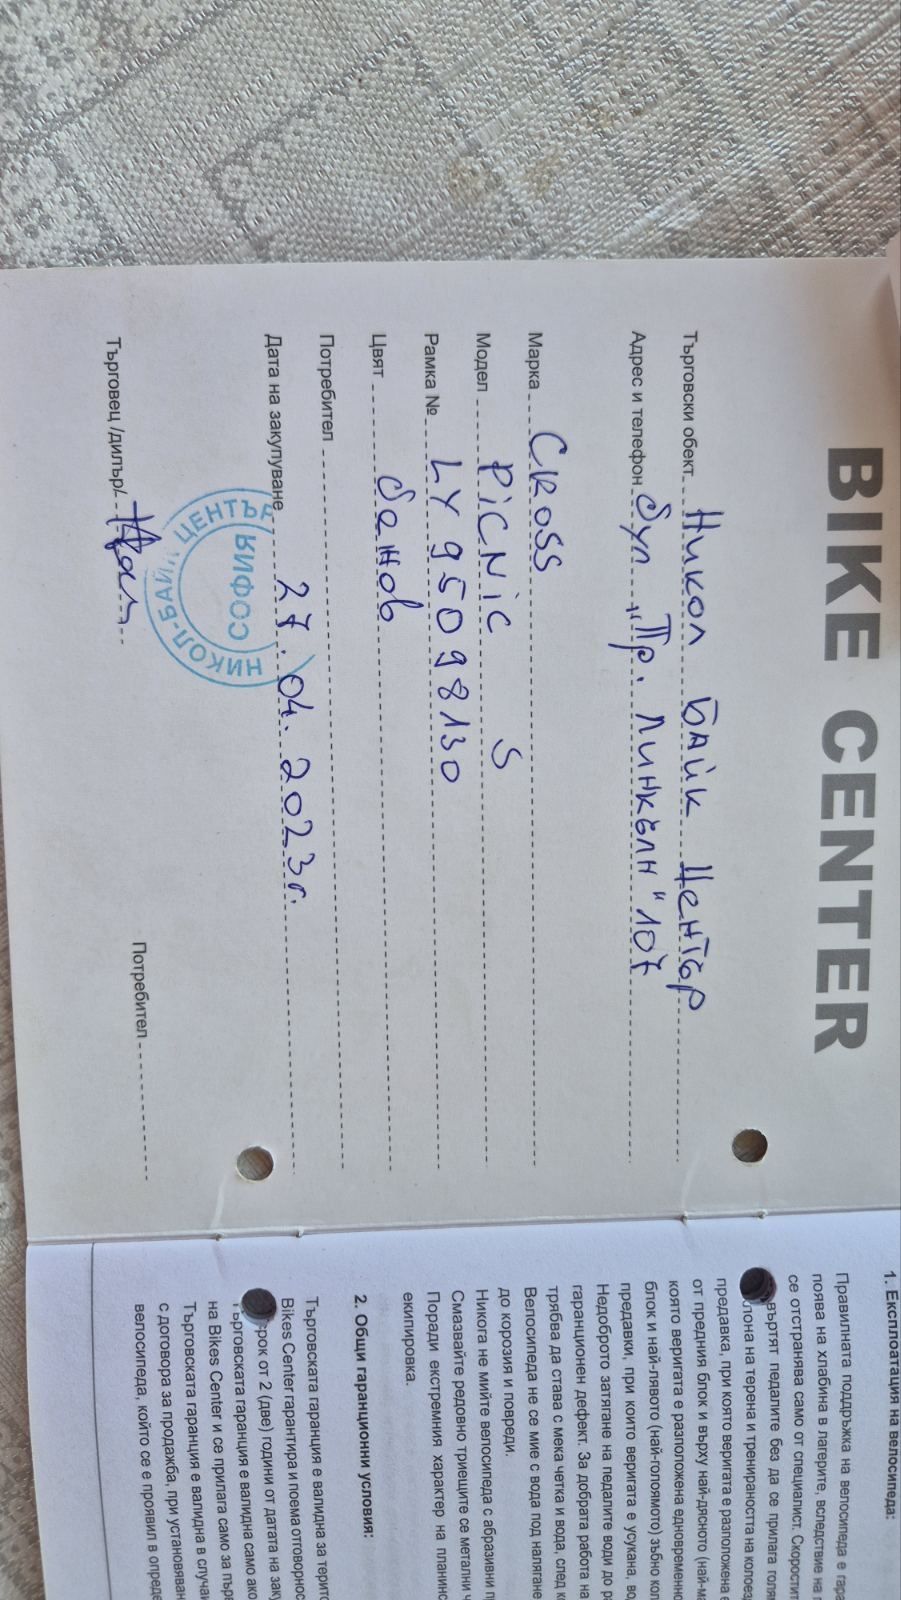 BIKE CENTER
Търговски обект Никол Байк Център
Адрес и телефон бул „Пр. Линкълн" 107
Марка CROSS
Модел PiCNiC S
Рамка № LY 95098130
Цвят бежов
Потребител
Дата на закупуване 27.04.2023г.
НИКОЛ-БАЙК ЦЕНТЪР
СОФИЯ
Търговец /дилър/
Потребител
1. Експлоатация на велосипеда:
Правилната поддръжка на велосипеда е
поява на хлабина в лагерите, вследствие на
се отстранява само от специалист.
въртят педалите без да се прилага
на терена и тренираността на
предавка, при която веригата е разположена
от предния блок и върху най-дясното
която веригата е разположена едновременно
блок и най-лявото (най-голямото) зъбно
предавки, при които веригата е усукана,
Недоброто затягане на педалите води до
гаранционен дефект. За добрата работа на
трябва да става с мека четка и вода, след
Велосипеда не се мие с вода под налягане
до корозия и повреди.
Никога не мийте велосипеда с абразивни
Смазвайте редовно триещите се метални
Поради екстремния характер на
екипировка.
2. Общи гаранционни условия:
Търговската гаранция е валидна за
Bikes Center гарантира и поема
срок от 2 (две) години от датата на
Търговската гаранция е валидна само ако
на Bikes Center и се прилага само за
Търговската гаранция е валидна в
с договора за продажба, при
велосипеда, който се е проявил в